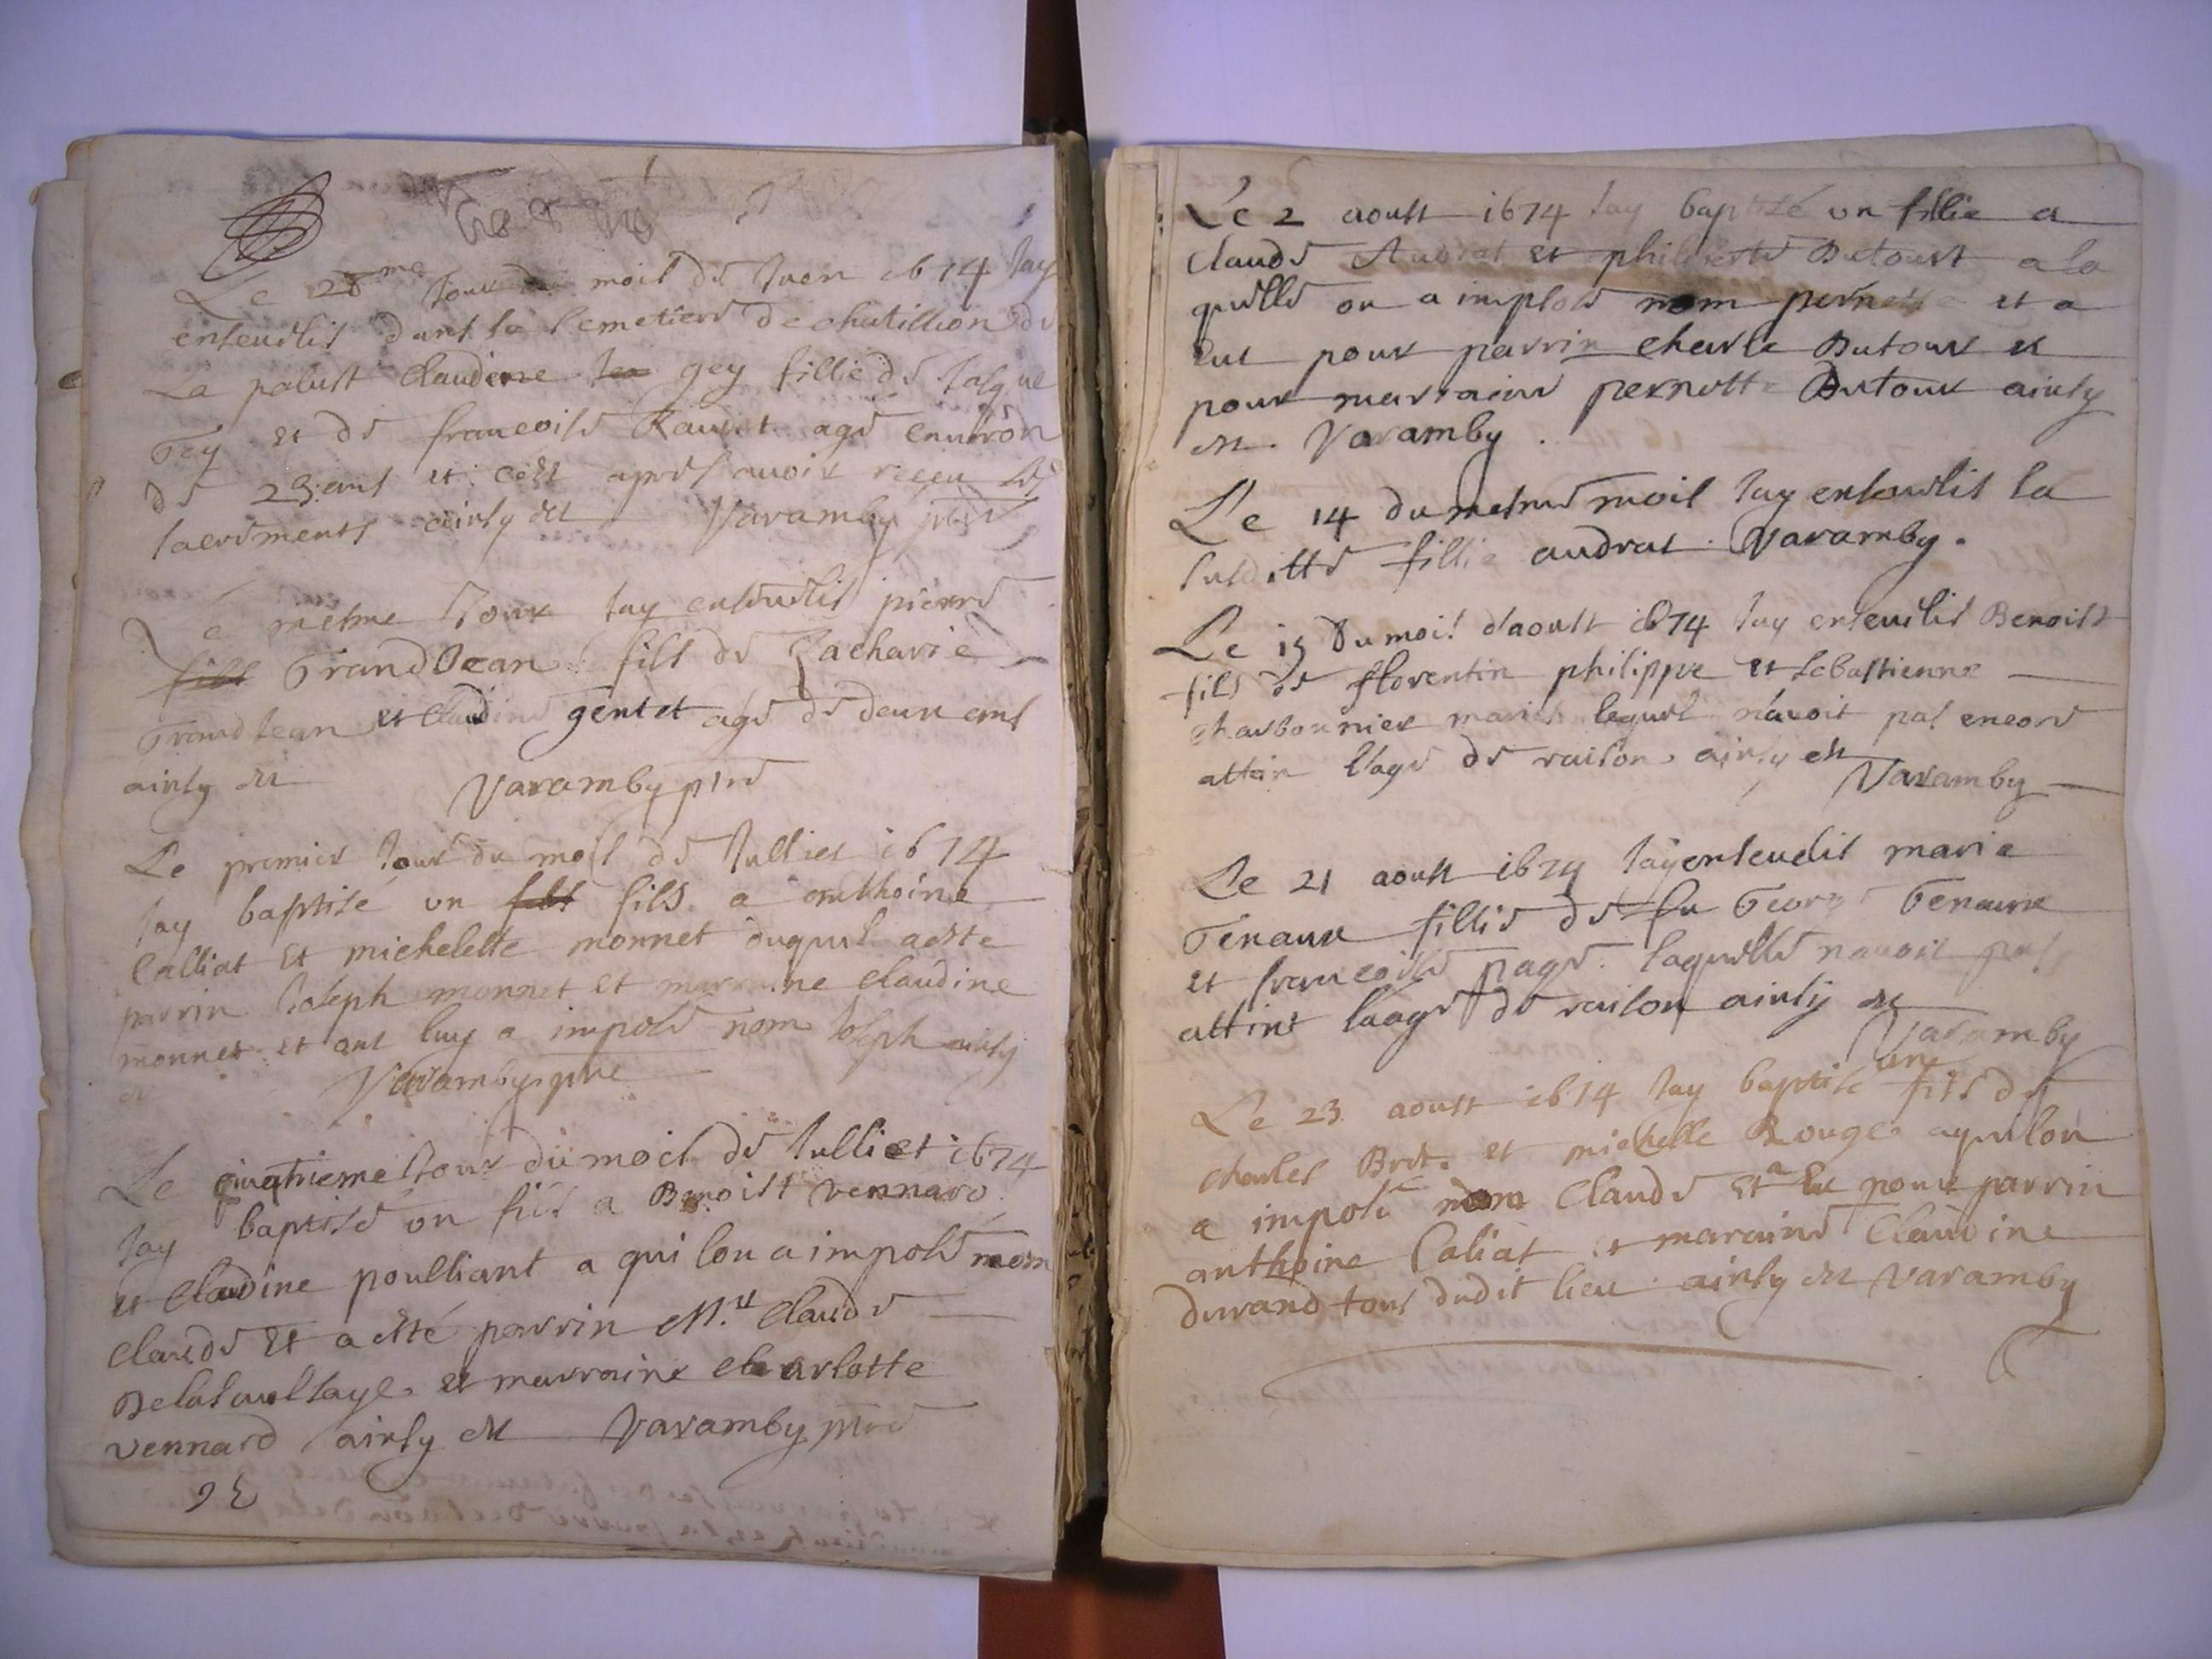 Le 28me jour du mois de Juen 1674 Jay
enseuelis dans le semetiere de chatillion de
La palust Claudine gey fillie de Jasque
Gey et de francoise Rauiet age enuiron
de 23 ans et cest apres auoir reçeu les
sacrements ainsy est Varamby ptre
Le mesme Jour Jay enseuelis pierre
fils Grand Jean fils de Zacharie
Grand Jean et Claudine gentet age de deux ans
ainsy est Varamby ptre
Le premier Jour du mois de Julliet 1674
Jay baptisé un fils fils a anthoine
Calliat Et michelette monnet duquel a este
parrin Joseph monnet et marraine Claudine
monnet et ont luy a imposé nom Joseph ainsy
est Varamby ptre
Le quatrieme Jour du mois de Julliet 1674
Jay baptisé un fils a Benoist vennard
et Claudine poulliant a qui lon a imposé nom
Claude Et a esté parrin Mre Claude
Delasaulsaye et marraine charlotte
vennard ainsy est Varamby ptre
Le 2 aoust 1674 Jay baptisé un fillie a
Claude Audrat et philiberte Dutourt a la
quelle on a imposé nom pernette et a
eut pour parrin charle Dutour et
pour marraine pernette Dutour ainsy
est Varamby.
Le 14 du mesme mois Jay enseuelis la
susditte fillie audrat. Varamby.
Le 15 Du mois daoust 1674 Jay enseuelis Benoist
fils de florentin philippe et sebastienne
charbonnier lequel n'auoit pas encore
attin l'age de raison, ainsy est
Varamby
Le 21 aoust 1674 Jay enseuelis marie
Tenaux fillie de fu George Tenaux
et francoise page. laquelle nauoit pas
attint laage de raison ainsy est
Varamby
Le 23 aoust 1674 Jay baptisé un fils de
charles Bret et michelle Rouge aquilon
a imposé nom Claude Et a eu pour parrin
anthoine Caliat et maraine Claudine
durand tous dudit lieu ainsy est Varamby